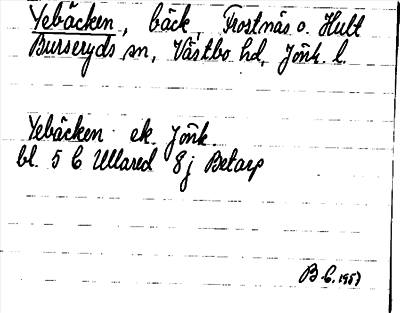 Yebäcken, bäck, Trostnäs o. Hult
Burseryds sn, Västbo hd, Jönk. l.
Yebäcken ek. Jönk.
bl. 5 C Ullared 8 j Betarp
B.C. 1957